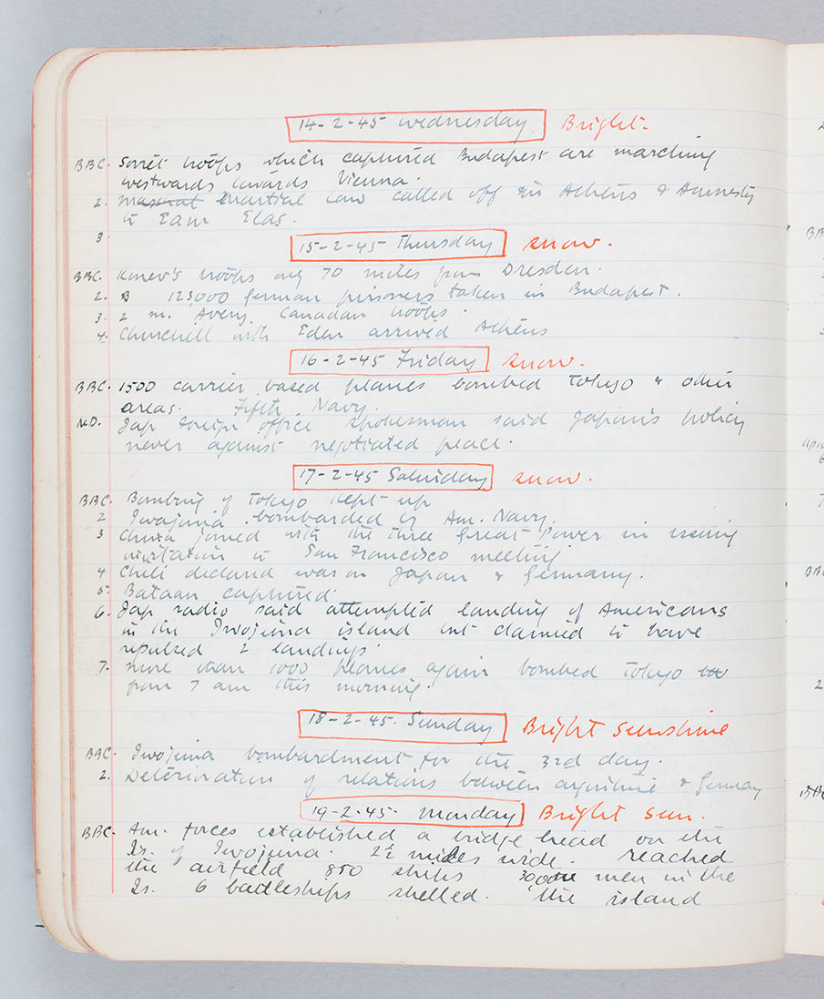 14-2-45 wednesday. Bright-
BBC. Soviet troops which captured Budapest are marching
westwards towards Vienna.
2. martial law called off in Athens & Amnesty
to Eam Elas.
3.
15-2-45 Thursday snow.
BBC. Konev's troops only 70 miles from Dresden.
2. 123,000 German prisoners taken in Budapest.
3. 2 m. Army, Canadian troops.
4. Churchill with Eden arrived Athens
16-2-45 Friday snow.
BBC. 1500 carrier based planes bombed Tokyo & other
areas. Fifth Navy.
N.D. Jap foreign office spokesman said Japan's policy
never against negotiated peace.
17-2-45 Saturday snow.
BBC. Bombing of Tokyo kept up
2 Iwojima bombarded by Am. Navy.
3 China joined with the three Great Power in issuing
invitation to San Francisco meeting.
4 Chili declared war on Japan & Germany.
5. Bataan captured.
6. Jap radio said attempted landing of Americans
in the Iwojima island but claimed to have
repulsed 2 landings.
7. more than 1000 planes again bombed Tokyo
from 7 am this morning.
18-2-45. Sunday Bright sunshine
BBC. Iwojima bombardment for the 3rd day.
2. Deterioration of relations between argentine & Germany
19-2-45- Monday Bright sun.
BBC. Am. forces established a bridge head on the
Is. of Iwojima. 2½ miles wide. reached
the airfield 850 ships men in the
Is. 6 badleships shelled. the island